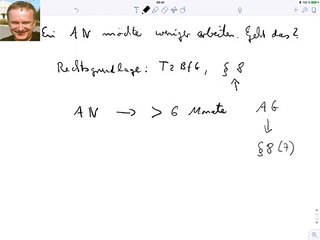 Ein AN möchte weniger arbeiten. Geht das?
Rechtsgrundlage: TzBfG, § 8
AN → > 6 Monate AG
§ 8 (7)